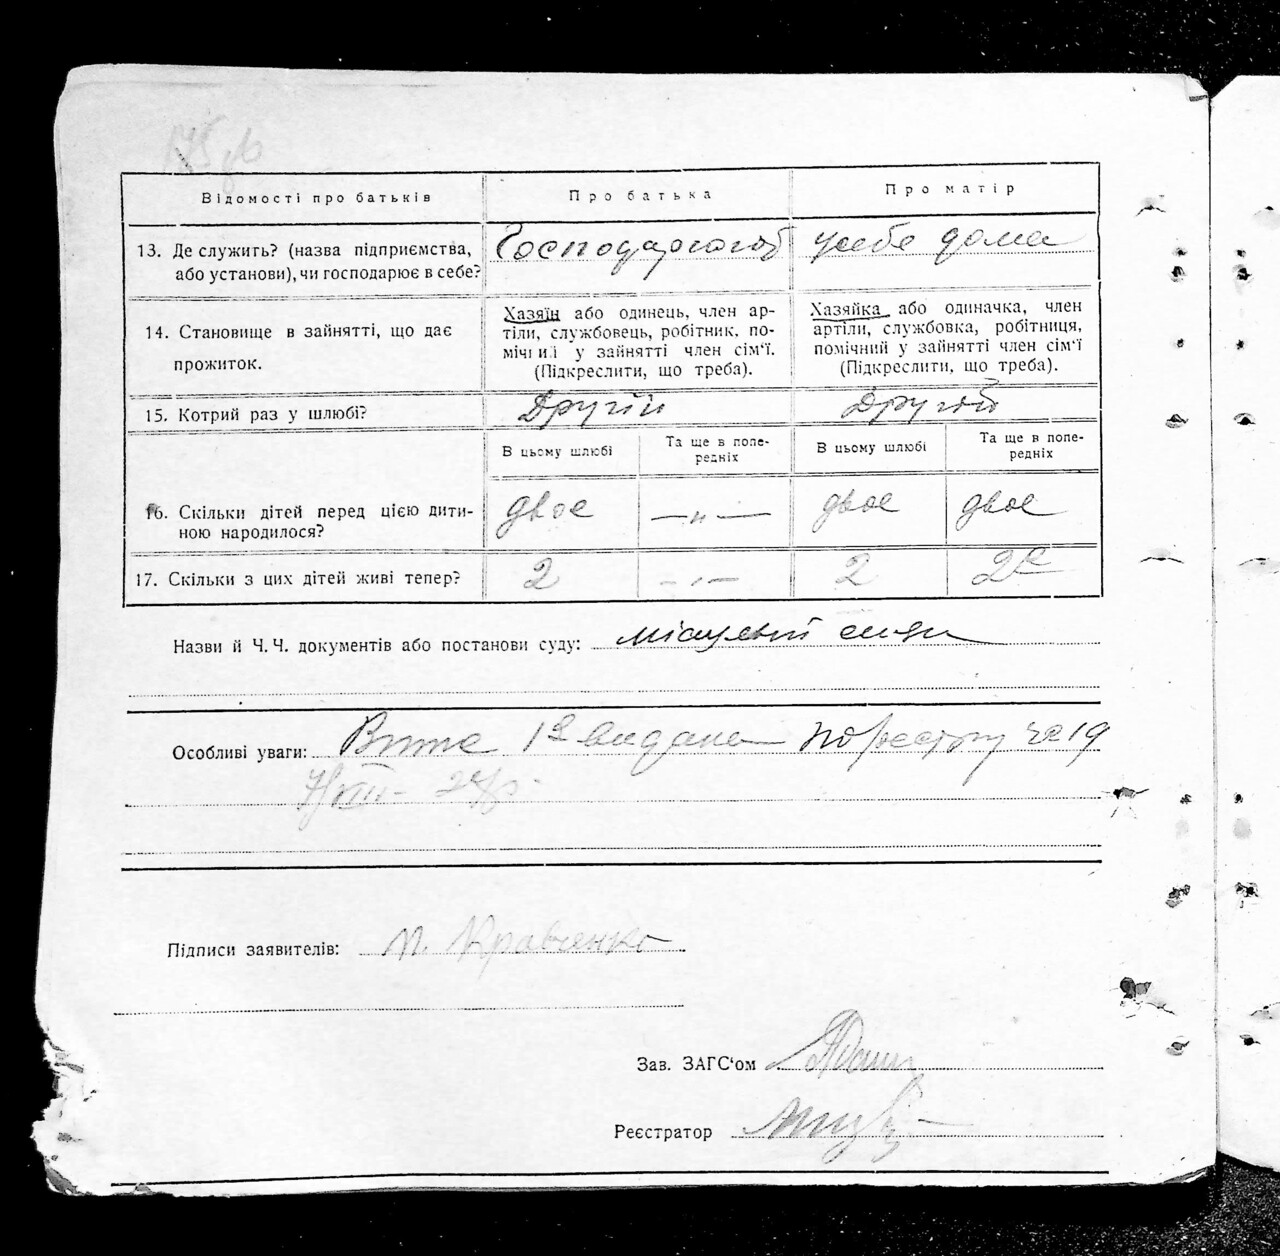 Відомості про батьків
Про батька
Про матір
13. Де служить? (назва підприємства,
або установи), чи господарює в себе?
у себе дома
14. Становище в зайнятті, що дає
прожиток.
Хазяїн або одинець, член ар-
тіли, службовець, робітник, по-
мічний у зайнятті член сім'ї.
(Підкреслити, що треба).
Хазяйка або одиначка, член
артіли, службовка, робітниця,
помічний у зайнятті член сім'ї
(Підкреслити, що треба).
15. Котрий раз у шлюбі?
Другій
Другій
В цьому шлюбі
Та ще в попе-
редніх
В цьому шлюбі
Та ще в попе-
редніх
16. Скільки дітей перед цією дити-
ною народилося?
двое
—„—
двое
двое
17. Скільки з цих дітей живі тепер?
2
—„—
2
2е
Назви й Ч. Ч. документів або постанови суду:
Особливі уваги: Випис 1а видана по реєстру № 19
Підписи заявителів: Кравченко
Зав. ЗАГС'ом
Реєстратор